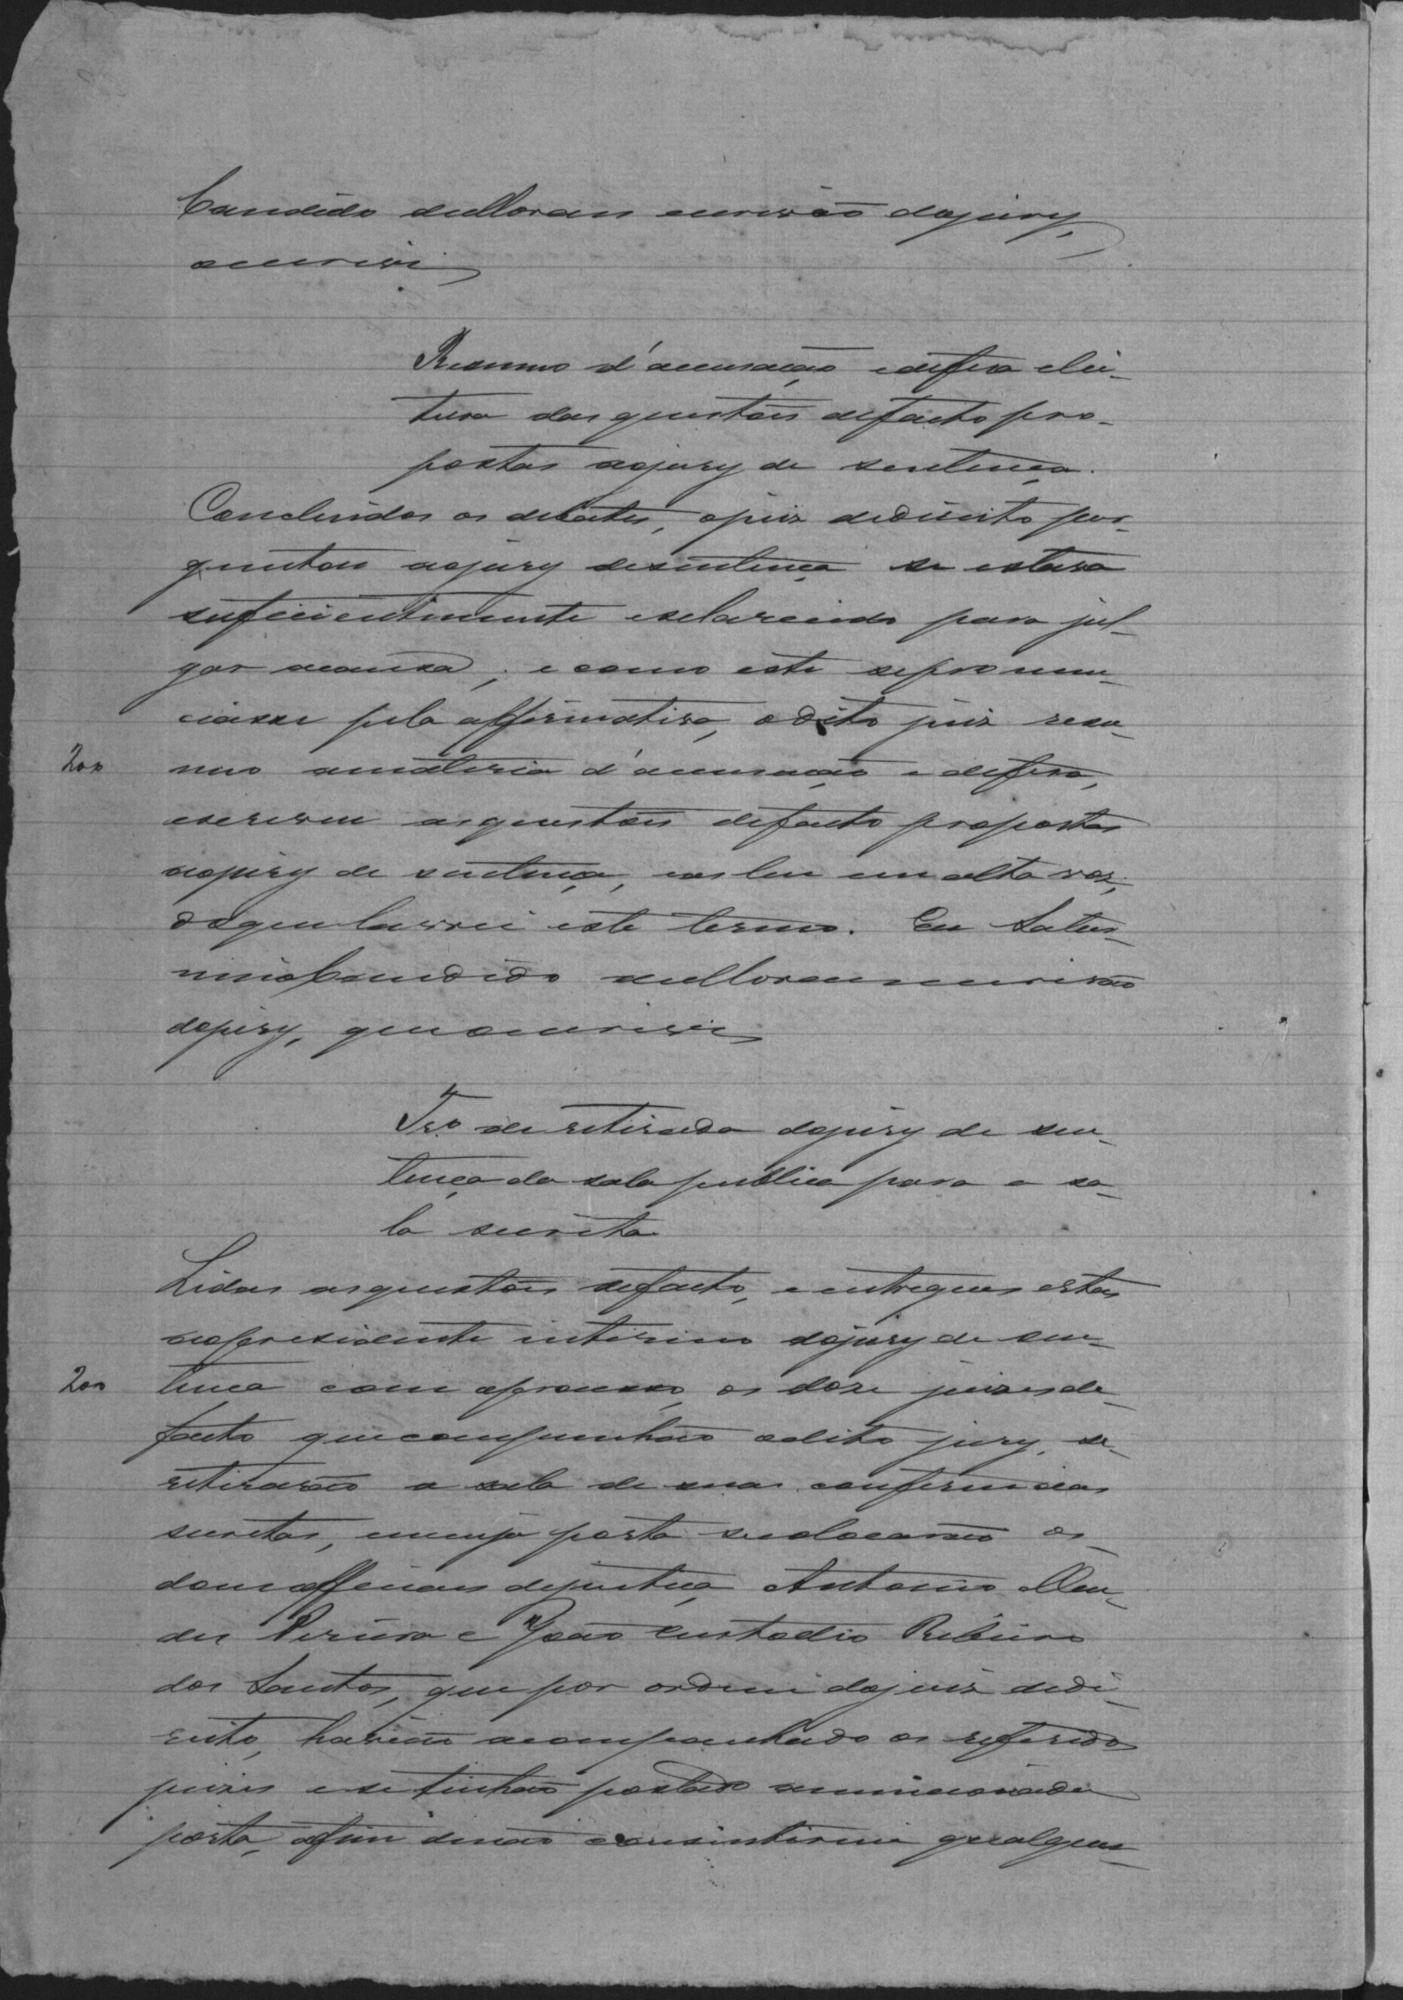 Candido de Moraes escrivão do jury,
o escrevi
Resumo d'accusação e defesa e lei-
tura das questões de facto pro-
postas ao jury de sentença.
Concluidos os debates, o juiz de direito per-
guntou ao jury de sentença se estava
sufficientimente esclarecido para jul-
gar a causa; e como este se pronun-
ciasse pela affirmativa, o dito juiz resu-
200 mio a materia d'accusação e defesa,
escreveu as questões de facto propostas
ao jury de sentença, e as leu em alta voz,
do que lavrei este termo. Eu Satur-
nino Candido de Moraes escrivão
do jury, que o escrevi
Tro de retirada do jury de sen-
tença da sala publica para a sa-
la secreta
Lidas as questões de facto, e entregues estas
ao presidente interino do jury de sen-
200 tença com o processo, os doze juizes de
facto que compunhão o dito jury, se
retirarão a sala de suas conferencias
secretas, em cuja porta se colocarão os
dous officiaes de justiça Antonio Men-
des Pereira e João Custodio Ribeiro
dos Santos, que por ordem do juiz de di-
reito, havião acompanhado os referidos
juizes e se tinhão postado a mencionada
porta, afim de não consintirem que alguem